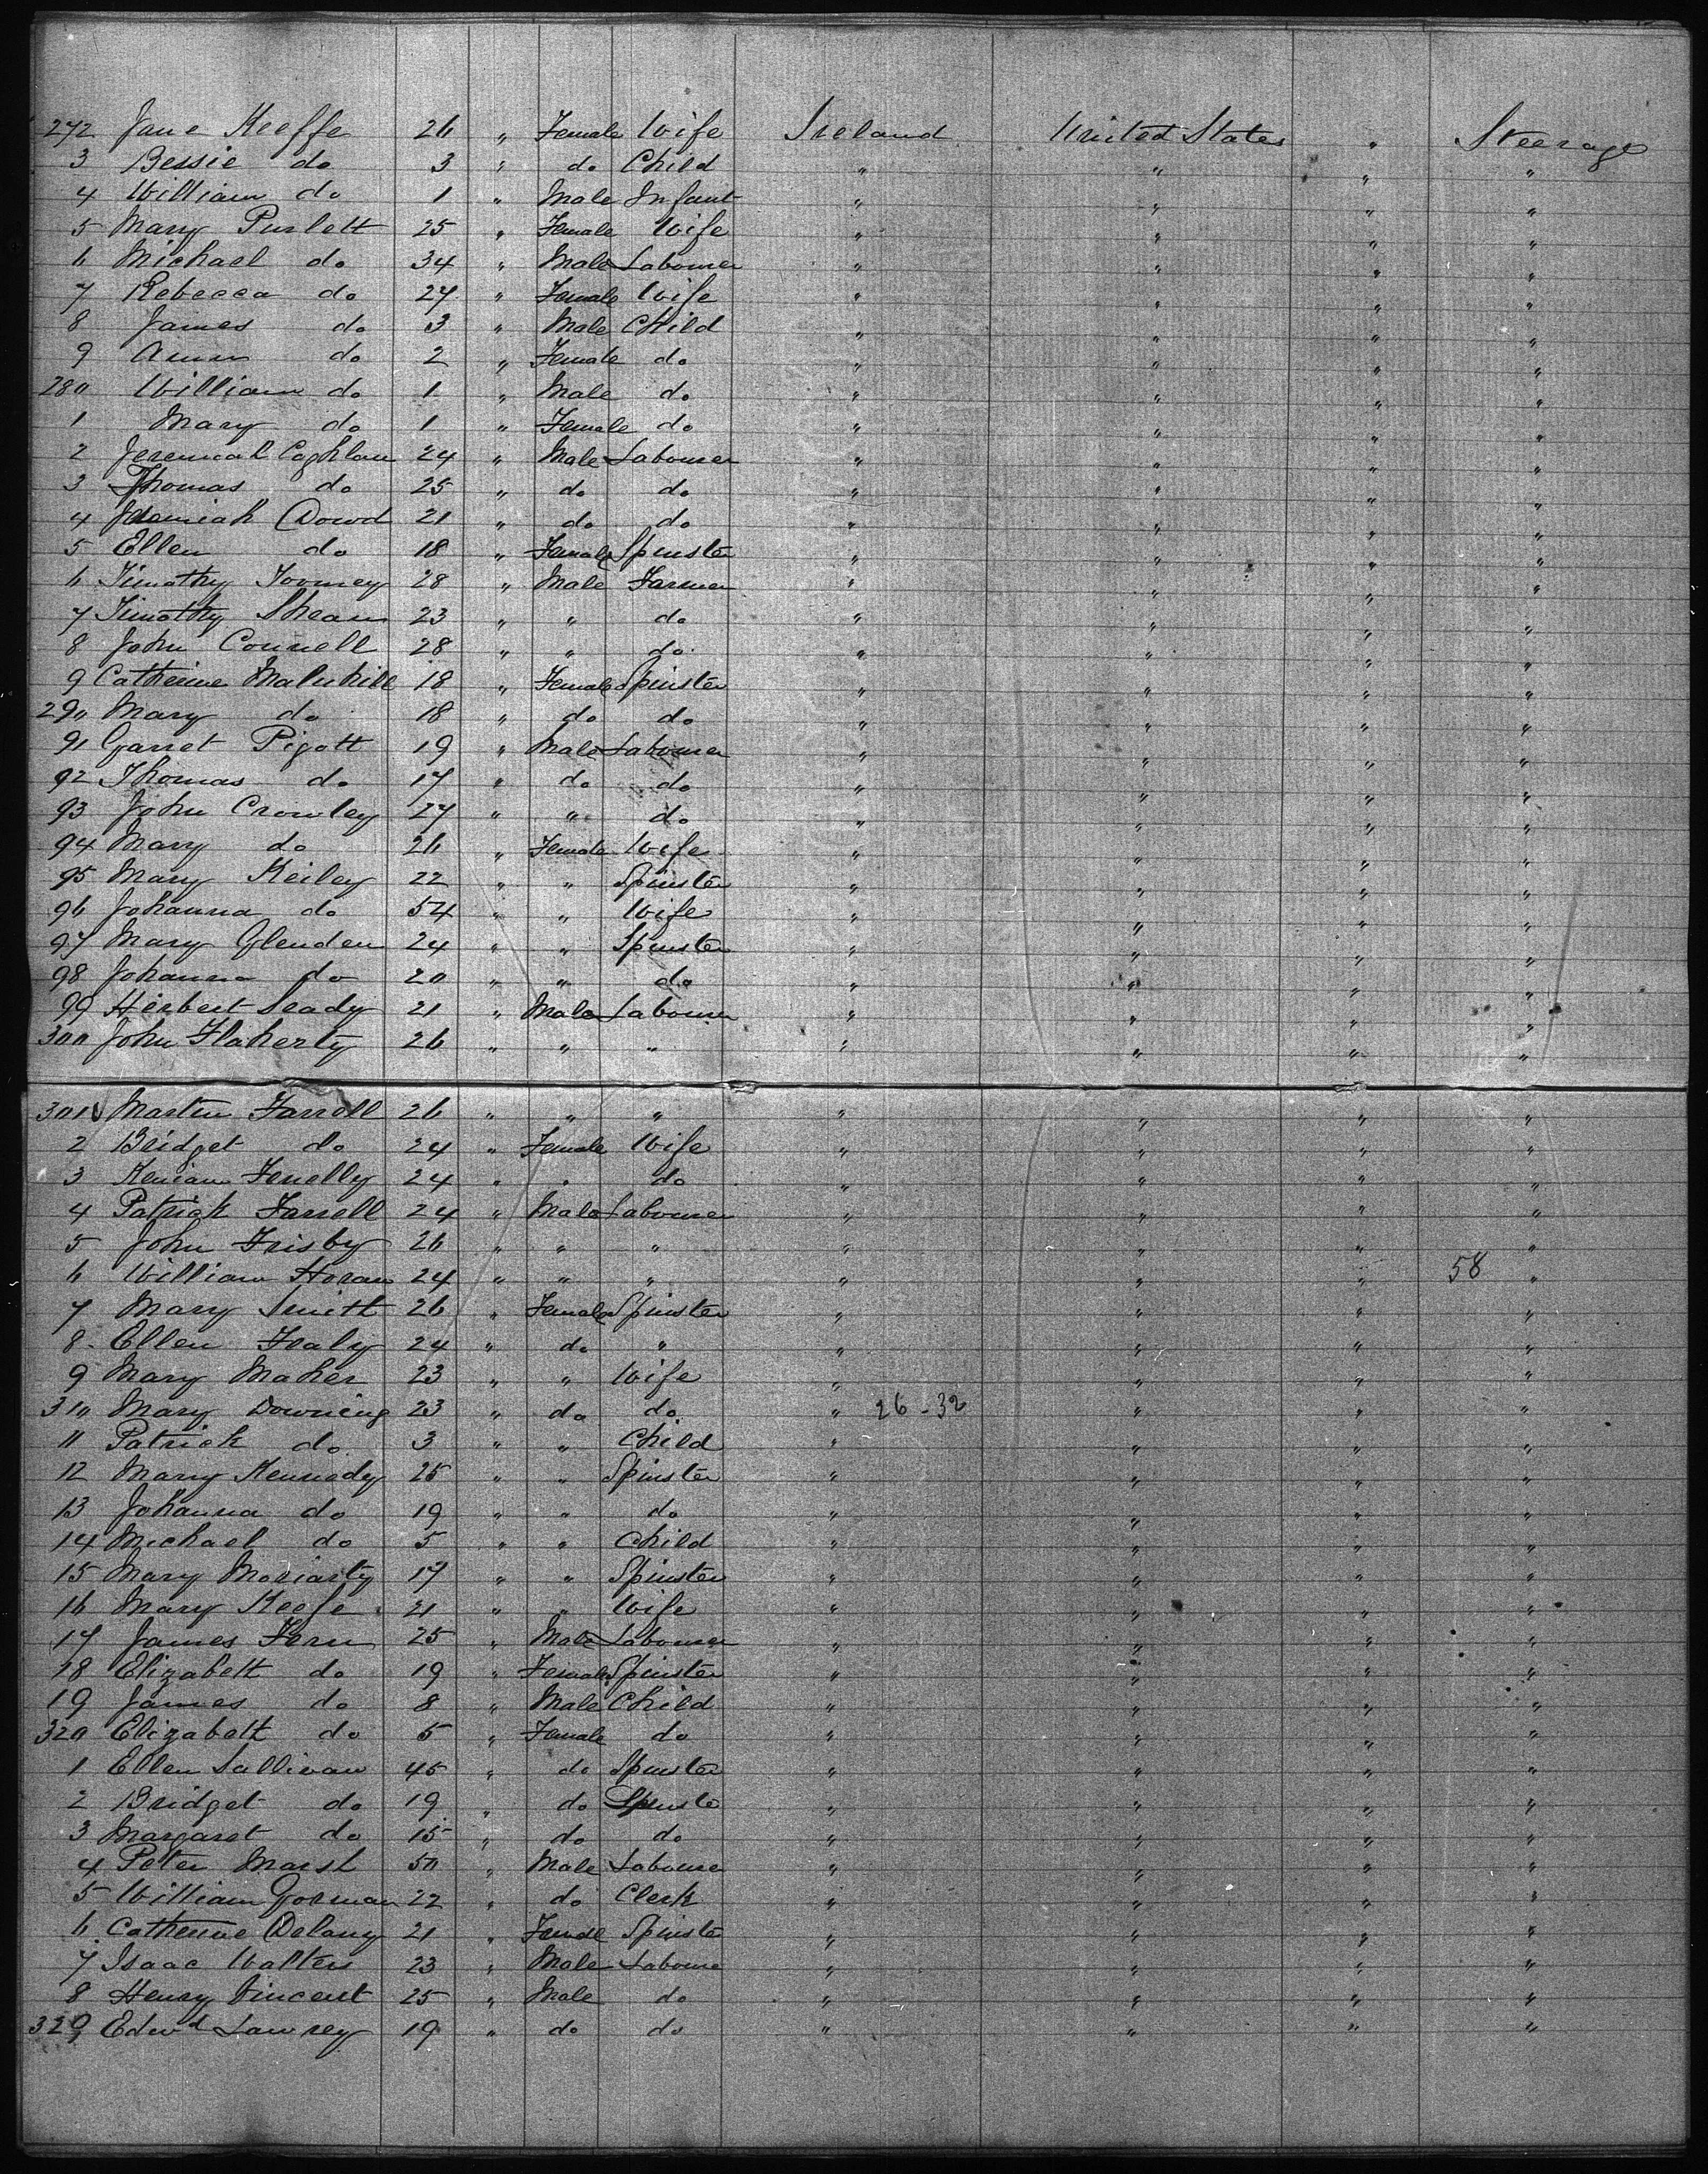 272 Jane Keeffe 26 " Female Wife Ireland United States " Steerage
3 Bessie do 3 " do Child " " " "
4 William do 1 " Male Infant " " " "
5 Mary Purlett 25 " Female Wife " " " "
6 Michael do 34 " Male Labourer " " " "
7 Rebecca do 27 " Female Wife " " " "
8 James do 3 " Male Child " " " "
9 Ann do 2 " Female do " " " "
280 William do 1 " Male do " " " "
1 Mary do 1 " Female do " " " "
2 Jeremiah Coghlan 24 " Male Labourer " " " "
3 Thomas do 25 " do do " " " "
4 Jeremiah Dowd 21 " do do " " " "
5 Ellen do 18 " Female Spinster " " " "
6 Timothy Toomey 28 " Male Farmer " " " "
7 Timothy Shean 23 " " do " " " "
8 John Connell 28 " " do " " " "
9 Catherine 18 " Female Spinster " " " "
290 Mary do 18 " do do " " " "
91 Garret Pigott 19 " Male Labourer " " " "
92 Thomas do 17 " do do " " " "
93 John Crowley 27 " " do " " " "
94 Mary do 26 " Female Wife " " " "
95 Mary Keiley 22 " " Spinster " " " "
96 Johanna do 54 " " Wife " " " "
97 Mary Glenden 24 " " Spinster " " " "
98 Johanna do 20 " " do " " " "
99 Herbert Seady 21 " Male Labourer " " " "
300 John Flaherty 26 " " " " " " "
301 Martin Farrell 26 " " " " " " "
2 Bridget do 24 " Female Wife " " " "
3 Fenelly 24 " " do " " " "
4 Patrick Farrell 24 " Male Labourer " " " "
5 John Frisby 26 " " " " " " "
6 William Horan 24 " " " " " " 58 "
7 Mary Smith 26 " Female Spinster " " " "
8 Ellen Fealy 24 " do " " " " "
9 Mary Maher 23 " " Wife " " " "
310 Mary Downing 23 " do do " 26-32 " " "
11 Patrick do 3 " " Child " " " "
12 Mary Kennedy 25 " " Spinster " " " "
13 Johanna do 19 " " do " " " "
14 Michael do 5 " " Child " " " "
15 Mary Moriarty 17 " " Spinster " " " "
16 Mary Keefe 21 " " Wife " " " "
17 James Fern 25 " Male Labourer " " " "
18 Elizabeth do 19 " Female Spinster " " " "
19 James do 8 " Male Child " " " "
320 Elizabeth do 5 " Female do " " " "
1 Ellen Sullivan 45 " do Spinster " " " "
2 Bridget do 19 " do Spinste " " " "
3 Margaret do 15 " do do " " " "
4 Peter Marsh 50 " Male Labourer " " " "
5 William Gorman 22 " do Clerk " " " "
6 Catherine Delany 21 " Female Spinste " " " "
7 Isaac Walters 23 " Male Laboure " " " "
8 Henry Vincent 25 " Male do " " " "
329 Edwd Lawrey 19 " do do " " " "